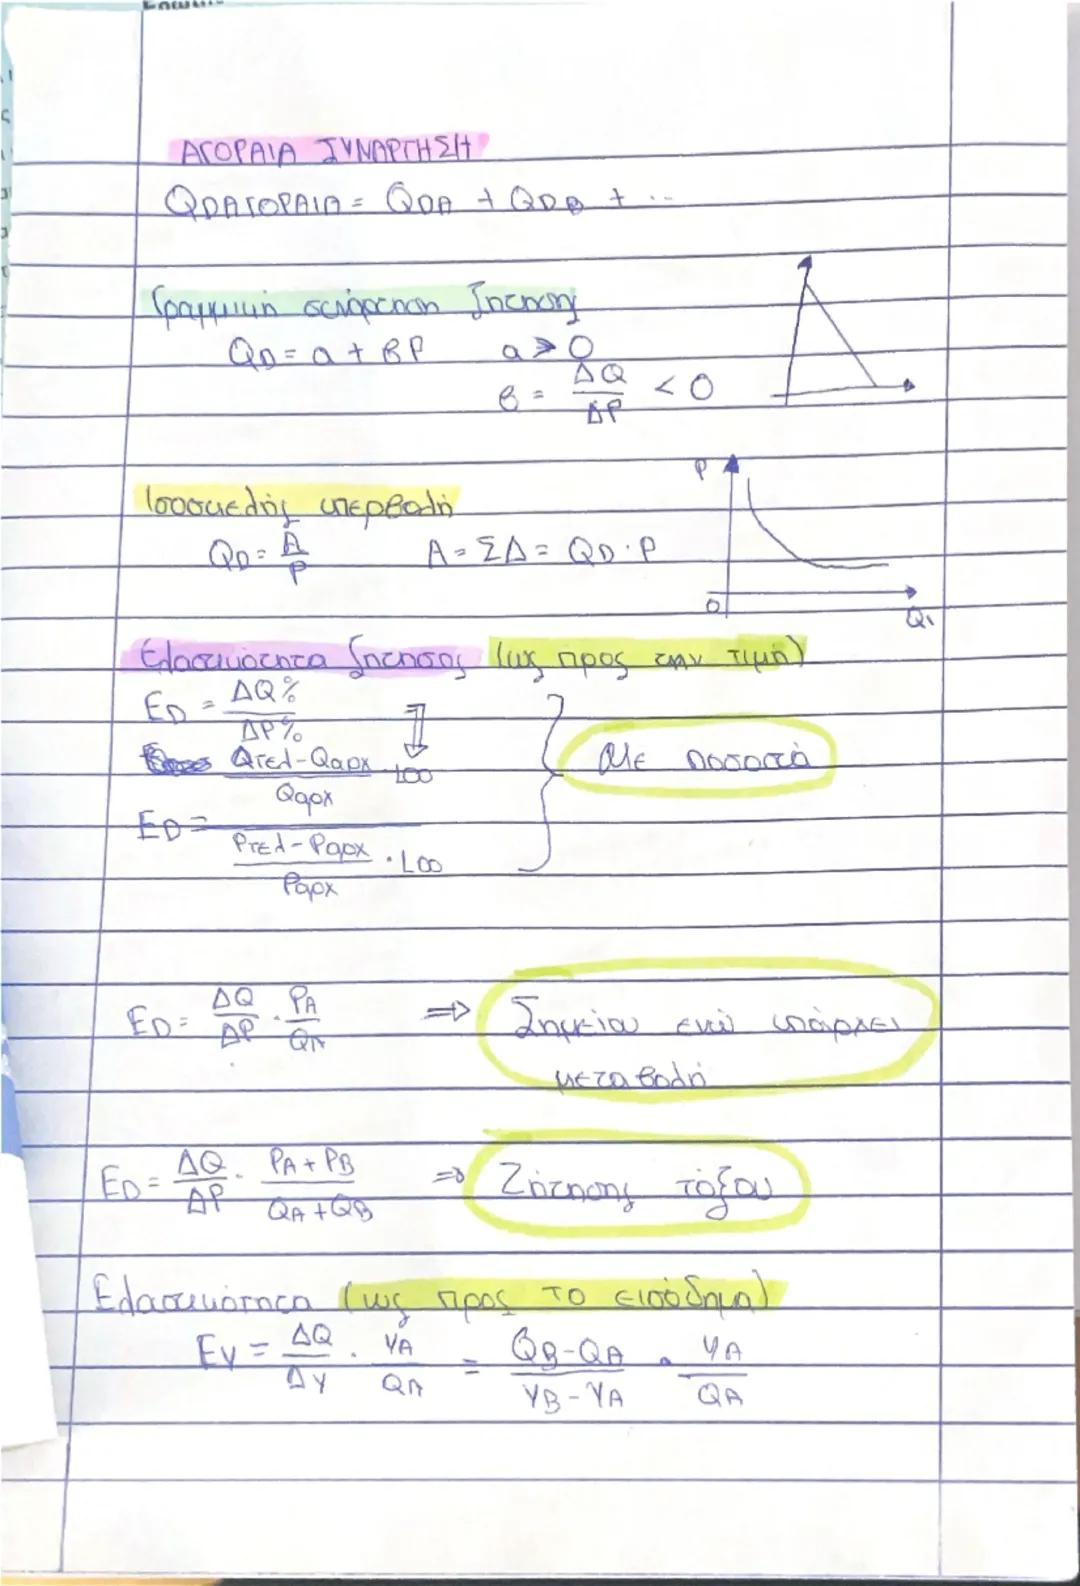 ΑΓΟΡΑΙΑ ΣΥΝΑΡΤΗΣΗ
QDΑΓΟΡΑΙΑ = QDA + QDB + ...
Γραμμική συνάρτηση ζήτησης
QD = α + βP α > 0
β = ΔQ/ΔP < 0
Ισοσκελής υπερβολή P
QD = A/P A = ΣΔ = QD · P
0 Q
Ελαστικότητα ζήτησης (ως προς την τιμή)
ED = ΔQ%/ΔP%
Με ποσοστά
Qτελ-Qαρχ/Qαρχ · 100
ED =
Pτελ-Pαρχ/Pαρχ · 100
ED = ΔQ/ΔP · PA/QA ⇒ Σημείου ενώ υπάρχει
μεταβολή
ED = ΔQ/ΔP · PA+PB/QA+QB ⇒ Ζήτησης τόξου
Ελαστικότητα (ως προς το εισόδημα)
Ey = ΔQ/ΔY · YA/QA = QB-QA/YB-YA · YA/QA